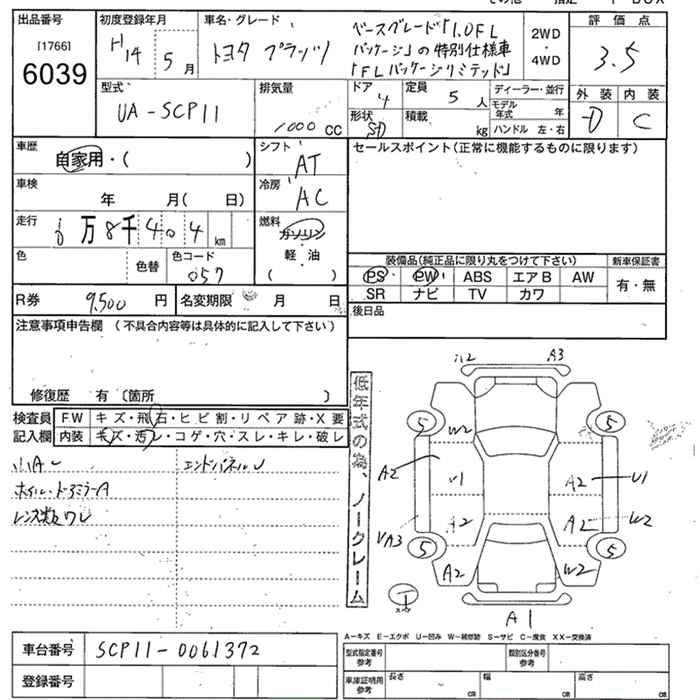 出品番号
[1766]
6039
初度登録年月
H14 5 月
車名・グレード
トヨタ プラッツ
ベースグレード「1.0FL
パッケージ」の特別仕様車
「FLパッケージリミテッド」
2WD
・
4WD
評価点
3.5
外装 内装
D C
型式
UA-SCP11
排気量
1000 CC
ドア
4
定員
5 人
ディーラー・並行
モデル年式 年
形状
SD
積載
kg
ハンドル 左・右
車歴
自家用・( )
シフト
AT
セールスポイント(正常に機能するものに限ります)
車検
年 月( 日)
冷房
AC
走行
6 万 8 千 4 0 4 km
燃料
ガソリン
軽・油
( )
色
色替
色コード
057
装備品(純正品に限り丸をつけて下さい)
新車保証書
PS PW ABS エアB AW
有・無
SR ナビ TV カワ
R券 9,500 円
名変期限 月 日
後日品
注意事項申告欄 (不具合内容等は具体的に記入して下さい)
修復歴 有〔箇所 〕
検査員
記入欄
FW キズ・飛石・ヒビ割・リペア跡・X要
内装 キズ・汚レ・コゲ・穴・スレ・キレ・破レ
小A〜
エンドパネルU
ホイル・ドアミラーA
低年式の為、ノークレーム
A3
5 5
W2
A2
U1
A2
U1
A2
A2
W2
5 5
A2
W2
A1
A-キズ E-エクボ U-凹み W-補修跡 S-サビ C-腐食 XX-交換済
車台番号 SCP11-0061372
登録番号
型式指定番号
参考
類別区分番号
参考
車庫証明用
参考
長さ cm
幅 cm
高さ cm